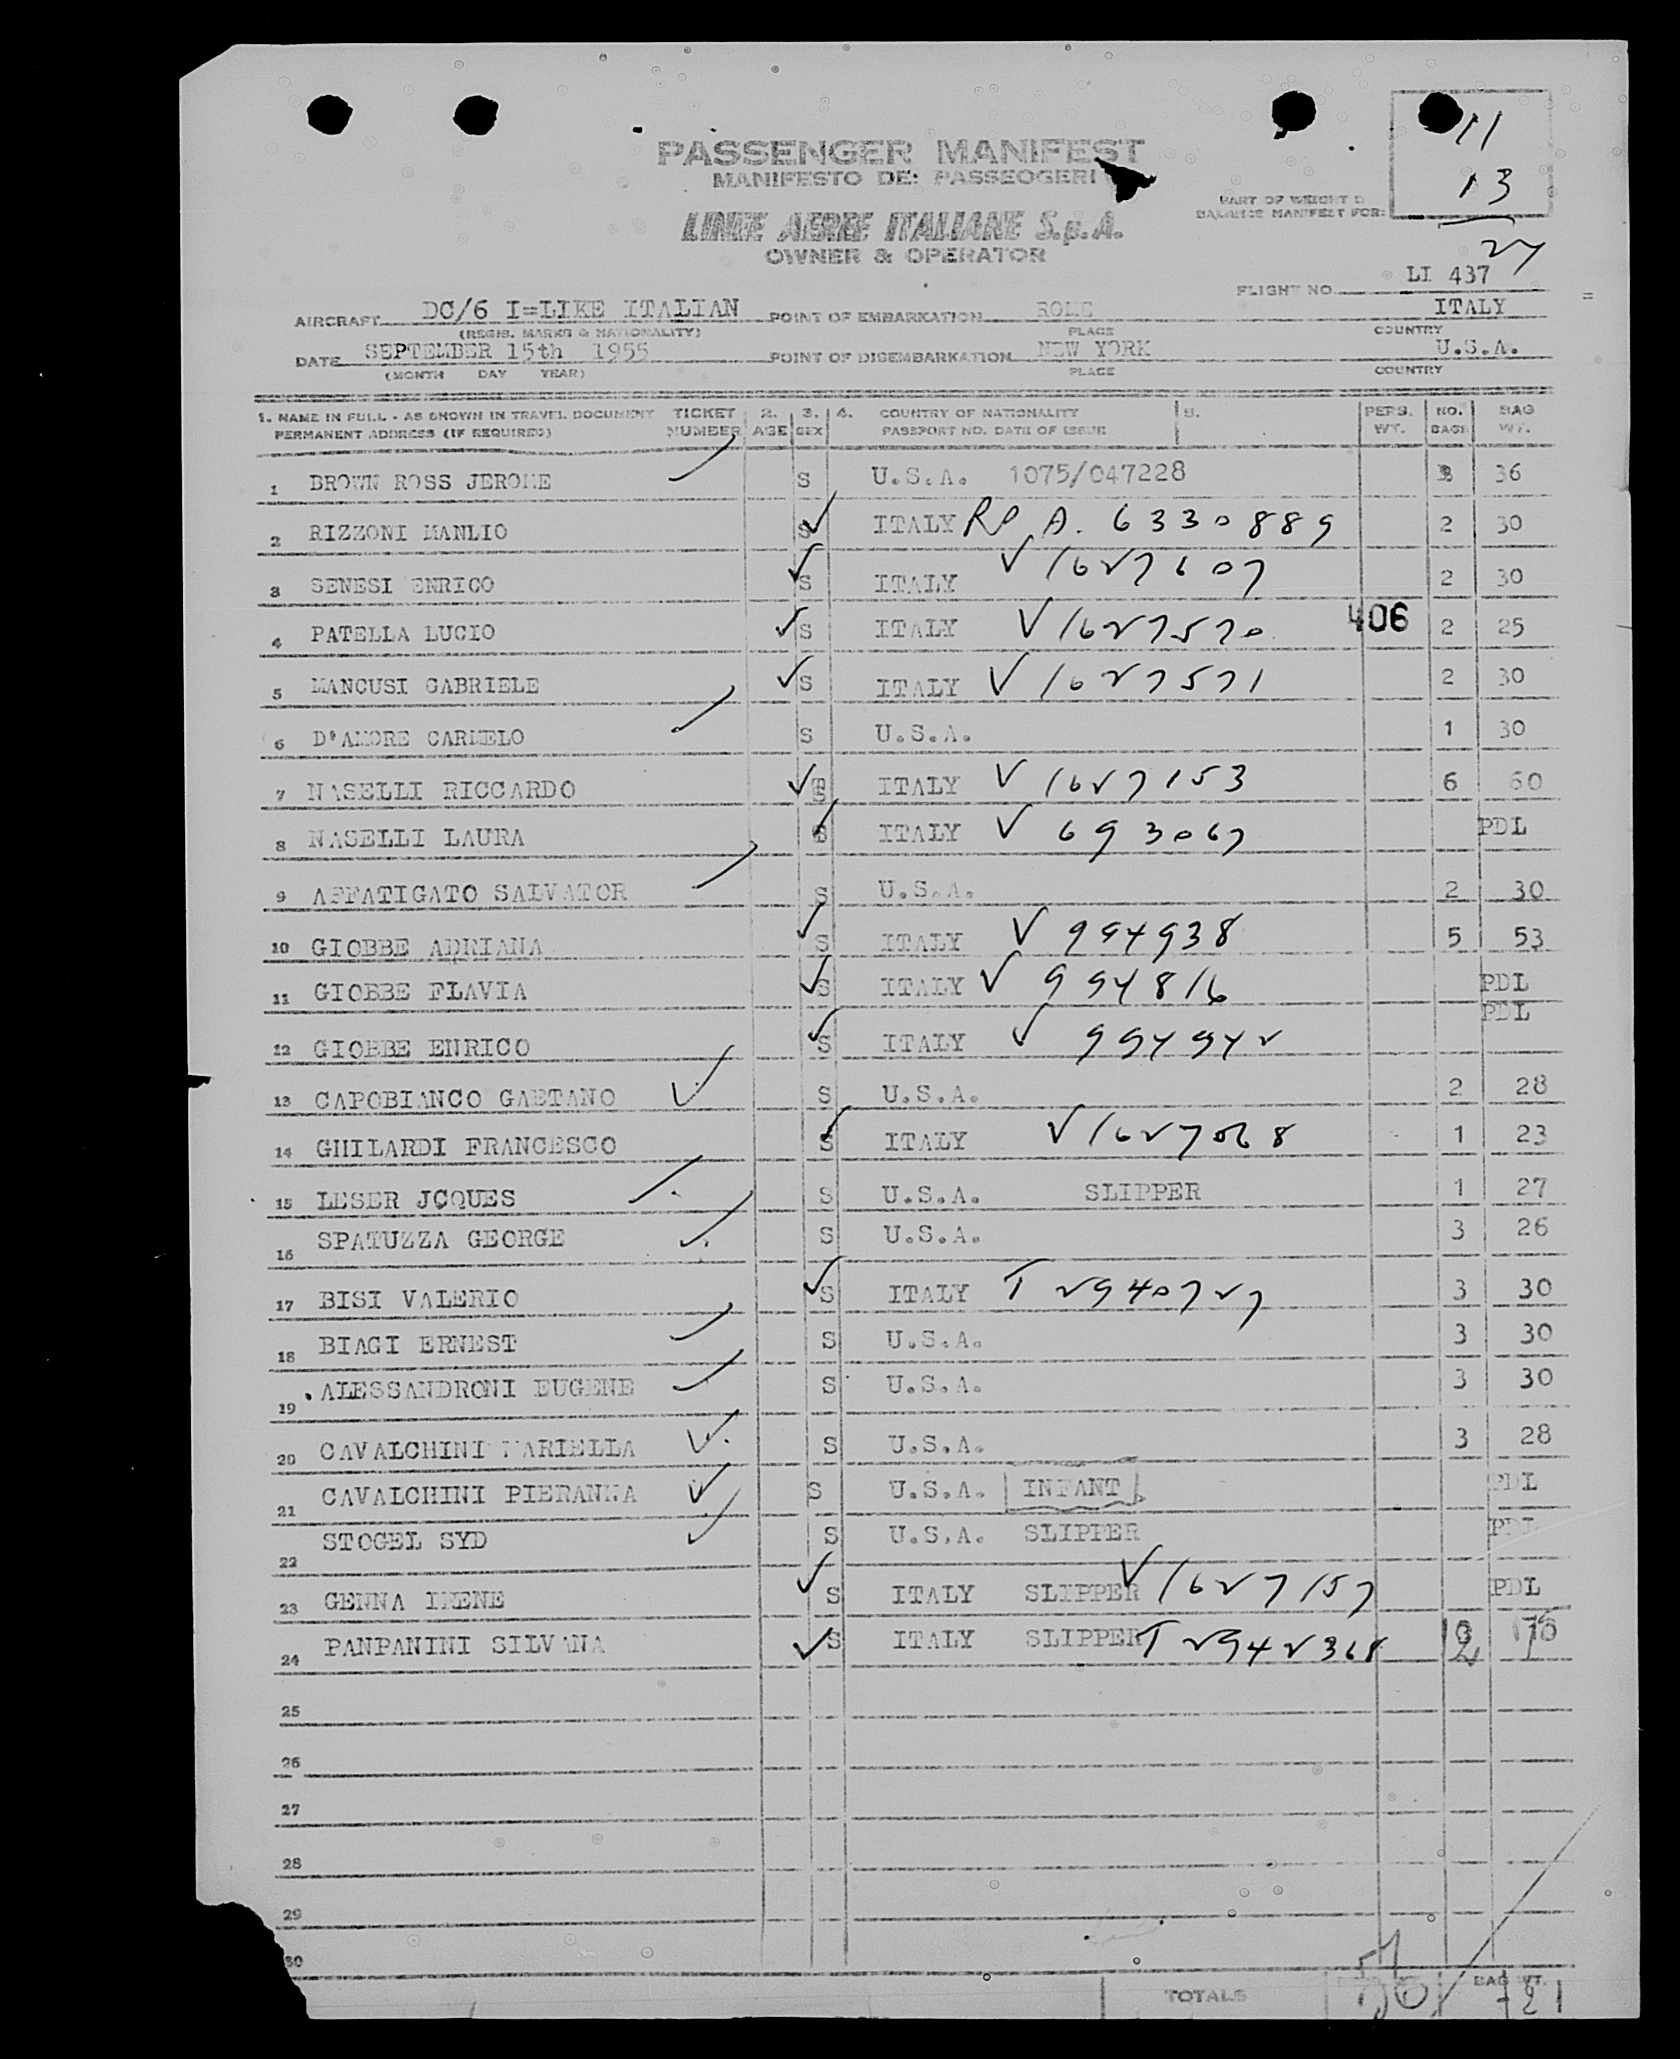 11
13
24
PASSENGER MANIFEST
MANIFESTO DE: PASSEOGERI
PART OF WEIGHT &
BALANCE MANIFEST FOR:
LINEE AEREE ITALIANE S.p.A.
OWNER & OPERATOR
FLIGHT NO. LI 437
AIRCRAFT DC/6 I=LIKE ITALIAN POINT OF EMBARKATION ROME ITALY
(REGIS. MARKS & NATIONALITY) PLACE COUNTRY
DATE SEPTEMBER 15th 1955 POINT OF DISEMBARKATION NEW YORK U.S.A.
(MONTH DAY YEAR) PLACE COUNTRY
1. NAME IN FULL - AS SHOWN IN TRAVEL DOCUMENT TICKET 2. 3. 4. COUNTRY OF NATIONALITY 5. PERS. NO. BAG
PERMANENT ADDRESS (IF REQUIRED) NUMBER AGE SEX PASSPORT NO. DATE OF ISSUE WT. BAGS WT.
1 BROWN ROSS JEROME S U.S.A. 1075/047228 3 36
2 RIZZONI MANLIO S ITALY RP A. 6330889 2 30
3 SENESI ENRICO S ITALY V 1627607 2 30
4 PATELLA LUCIO S ITALY V 1627570 406 2 25
5 MANCUSI GABRIELE S ITALY V 1627571 2 30
6 D'AMORE CARMELO S U.S.A. 1 30
7 NASELLI RICCARDO S ITALY V 1627153 6 60
8 NASELLI LAURA S ITALY V 693067 PDL
9 AFFATIGATO SALVATOR S U.S.A. 2 30
10 GIOBBE ADRIANA S ITALY V 994938 5 53
11 GIOBBE FLAVIA S ITALY V 994816 PDL
PDL
12 GIOBBE ENRICO S ITALY V 994942
13 CAPOBIANCO GAETANO S U.S.A. 2 28
14 GHILARDI FRANCESCO S ITALY V 1627068 1 23
15 LESER JCQUES S U.S.A. SLIPPER 1 27
16 SPATUZZA GEORGE S U.S.A. 3 26
17 BISI VALERIO S ITALY T 2940727 3 30
18 BIAGI ERNEST S U.S.A. 3 30
19 ALESSANDRONI EUGENE S U.S.A. 3 30
20 CAVALCHINI MARIELLA S U.S.A. 3 28
21 CAVALCHINI PIERANNA S U.S.A. INFANT PDL
22 STOGEL SYD S U.S.A. SLIPPER PDL
23 GENNA IRENE S ITALY SLIPPER V 1627157 PDL
24 PANPANINI SILVANA S ITALY SLIPPER T 2942368
25
26
27
28
29
30
TOTALS BAG WT.